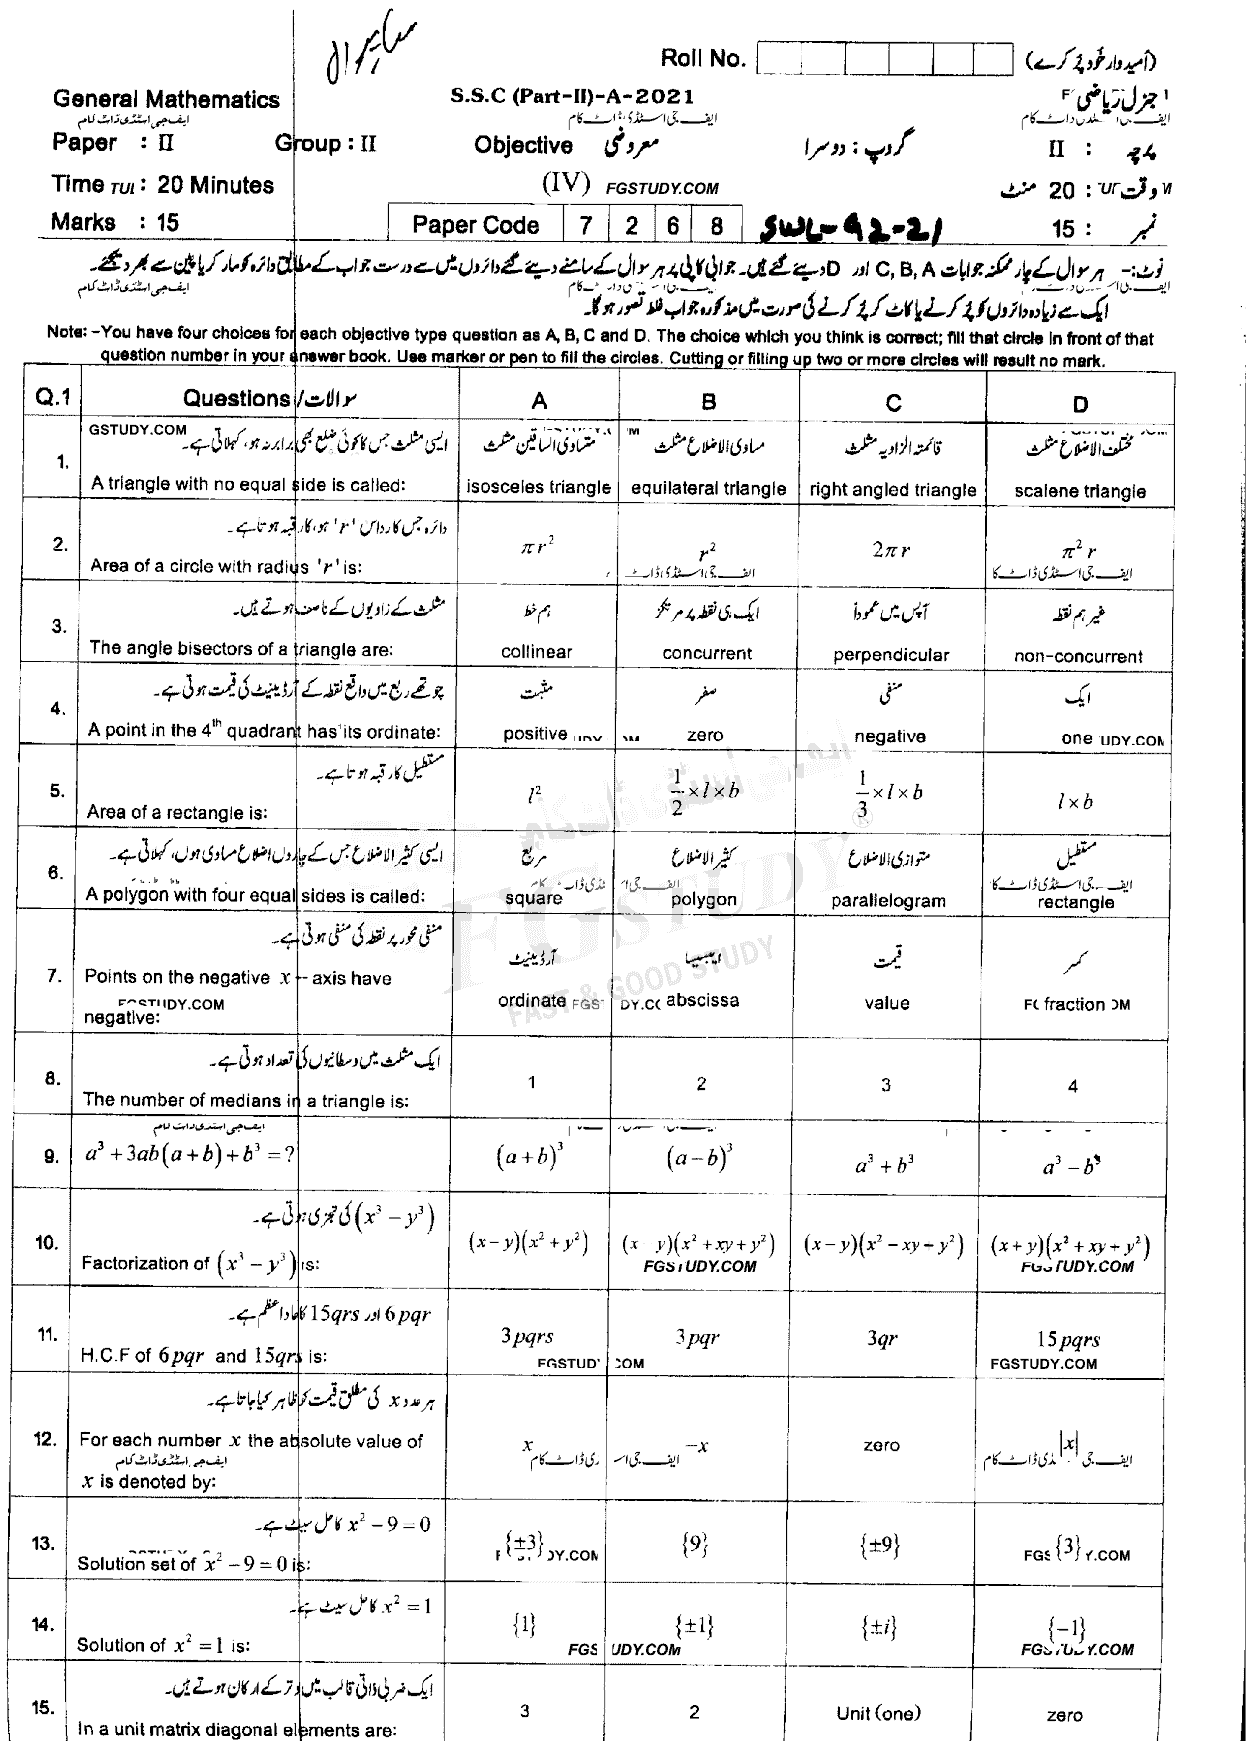 ساہیوال
Roll No. (امیدوار خود پُر کرے)
General Mathematics S.S.C (Part-II)-A-2021 جنرل ریاضی
ایف جی اسٹڈی ڈاٹ کام
Paper : II Group : II Objective معروضی گروپ : دوسرا پرچہ : II
Time : 20 Minutes (IV) FGSTUDY.COM وقت : 20 منٹ
Marks : 15 Paper Code 7 2 6 8 SWL-92-21 نمبر : 15
نوٹ:- ہر سوال کے چار ممکنہ جوابات C, B, A اور D دیئے گئے ہیں۔ جوابی کاپی پر ہر سوال کے سامنے دیئے گئے دائروں میں سے درست جواب کے مطابق دائرہ کو مارکر یا پین سے بھر دیجئے۔
ایک سے زیادہ دائروں کو پُر کرنے یا کاٹ کر پُر کرنے کی صورت میں مذکورہ جواب غلط تصور ہو گا۔
Note: -You have four choices for each objective type question as A, B, C and D. The choice which you think is correct; fill that circle in front of that
question number in your answer book. Use marker or pen to fill the circles. Cutting or filling up two or more circles will result no mark.
Q.1 Questions/سوالات A B C D
GSTUDY.COM ایسی مثلث جس کا کوئی ضلع بھی برابر نہ ہو، کہلاتی ہے۔ متساوی الساقین مثلث مساوی الاضلاع مثلث قائمتہ الزاویہ مثلث مختلف الاضلاع مثلث
1. A triangle with no equal side is called: isosceles triangle equilateral triangle right angled triangle scalene triangle
دائرہ جس کا رداس 'r' ہو، کا رقبہ ہوتا ہے۔
2. Area of a circle with radius 'r' is: πr² r² 2πr π²r
مثلث کے زاویوں کے ناصف ہوتے ہیں۔ ہم خط ایک ہی نقطہ پر مرتکز آپس میں عموداً غیر ہم نقطہ
3. The angle bisectors of a triangle are: collinear concurrent perpendicular non-concurrent
چوتھے ربع میں واقع نقطہ کے آرڈینیٹ کی قیمت ہوتی ہے۔ مثبت صفر منفی ایک
4. A point in the 4th quadrant has its ordinate: positive zero negative one
مستطیل کا رقبہ ہوتا ہے۔
5. Area of a rectangle is: l² 1/2 × l × b 1/3 × l × b l × b
ایسی کثیر الاضلاع جس کے چاروں اضلاع مساوی ہوں، کہلاتی ہے۔ مربع کثیر الاضلاع متوازی الاضلاع مستطیل
6. A polygon with four equal sides is called: square polygon parallelogram rectangle
منفی محور پر نقطہ کی منفی ہوتی ہے۔ آرڈینیٹ ایبسیسا قیمت کسر
7. Points on the negative x – axis have ordinate abscissa value fraction
FGSTUDY.COM
negative:
ایک مثلث میں وسطانیوں کی تعداد ہوتی ہے۔
8. The number of medians in a triangle is: 1 2 3 4
ایف جی اسٹڈی ڈاٹ کام
9. a³ + 3ab(a + b) + b³ = ? (a + b)³ (a – b)³ a³ + b³ a³ – b³
(x³ – y³) کی تجزی ہوتی ہے۔
10. Factorization of (x³ – y³) is: (x – y)(x² + y²) (x y)(x² + xy + y²) (x – y)(x² – xy – y²) (x + y)(x² + xy + y²)
FGSTUDY.COM FGSTUDY.COM
6pqr اور 15qrs کا عاداعظم ہے۔
11. H.C.F of 6pqr and 15qrs is: 3pqrs 3pqr 3qr 15pqrs
FGSTUDY.COM FGSTUDY.COM
ہر عدد x کی مطلق قیمت کو ظاہر کیا جاتا ہے۔
12. For each number x the absolute value of x –x zero |x|
ایف جی اسٹڈی ڈاٹ کام
x is denoted by:
x² – 9 = 0 کا حل سیٹ ہے۔
13. Solution set of x² – 9 = 0 is: {±3} {9} {±9} {3}
x² = 1 کا حل سیٹ ہے۔
14. Solution of x² = 1 is: {1} {±1} {±i} {–1}
FGSTUDY.COM FGSTUDY.COM
ایک ضربی ذاتی قالب میں وتر کے ارکان ہوتے ہیں۔
15. In a unit matrix diagonal elements are: 3 2 Unit (one) zero
FGSTUDY
FAST & GOOD STUDY